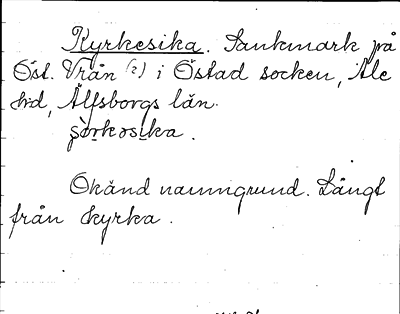 Kyrkesika. Sankmark på
Öst. Vrån (?) i Östad socken, Ale
hd, Älfsborgs län.
Okänd namngrund. Långt
från kyrka.